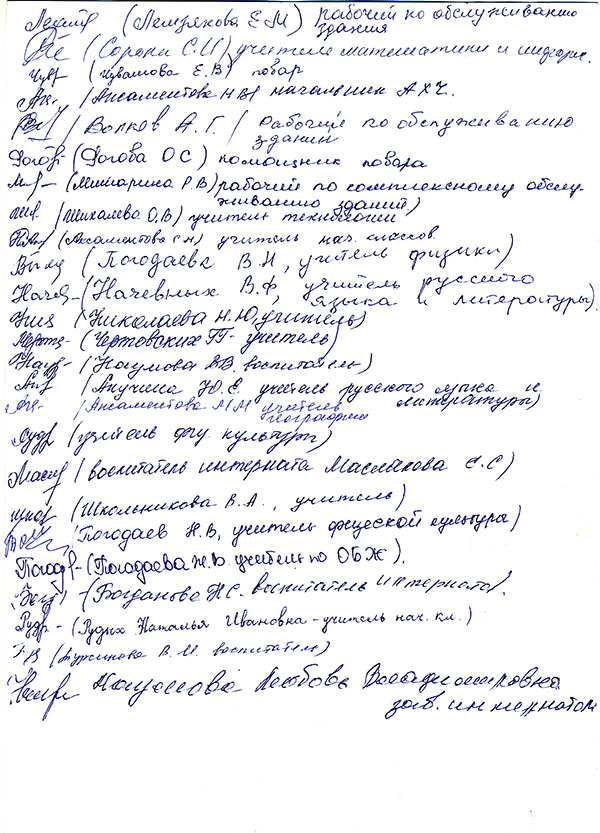 (Лемзякова Е М) рабочий по обслуживанию
здания
(Сороки С.И) учитель математики и информ.
Чув (Чувашова Е.В) повар
/Аксаментова Н В/ начальник АХЧ.
/Волков А. Г. / Рабочий по обслуживанию
здании
Догоб- (Догоба О С) помощник повара
(Мишарина Р.В) рабочий по комплексному обслу-
живанию зданий)
(Шихалева О,В) учитель технологии
(Аксаментова С Н) учитель нач. классов.
(Погодаева В.Н, учитель физики)
Начев- (Начевных В.Ф, учитель русского
языка и литературы).
(Николаева Н.Ю, учитель)
(Чертовских ГГ- учитель)
Наум- (Наумова В.В. воспитатель)
/Анучина Ю.Е учитель русского языка и
литературы)
/Аксаментова М М учитель
географии
(учитель физ. культуры)
/воспитатель интерната С.С)
школ (Школьникова В.А., учитель)
(Погодаев Н.В, учитель физческой культуры)
Погод- (Погодаева Ж.В. учитель по ОБЖ).
- (Богданова Н.С. воспитатель интерната).
Рудх.- (Рудых Наталья Ивановна - учитель нач. кл.)
В. И. воспитатель)
Любовь Владимировна
зав. интернатом